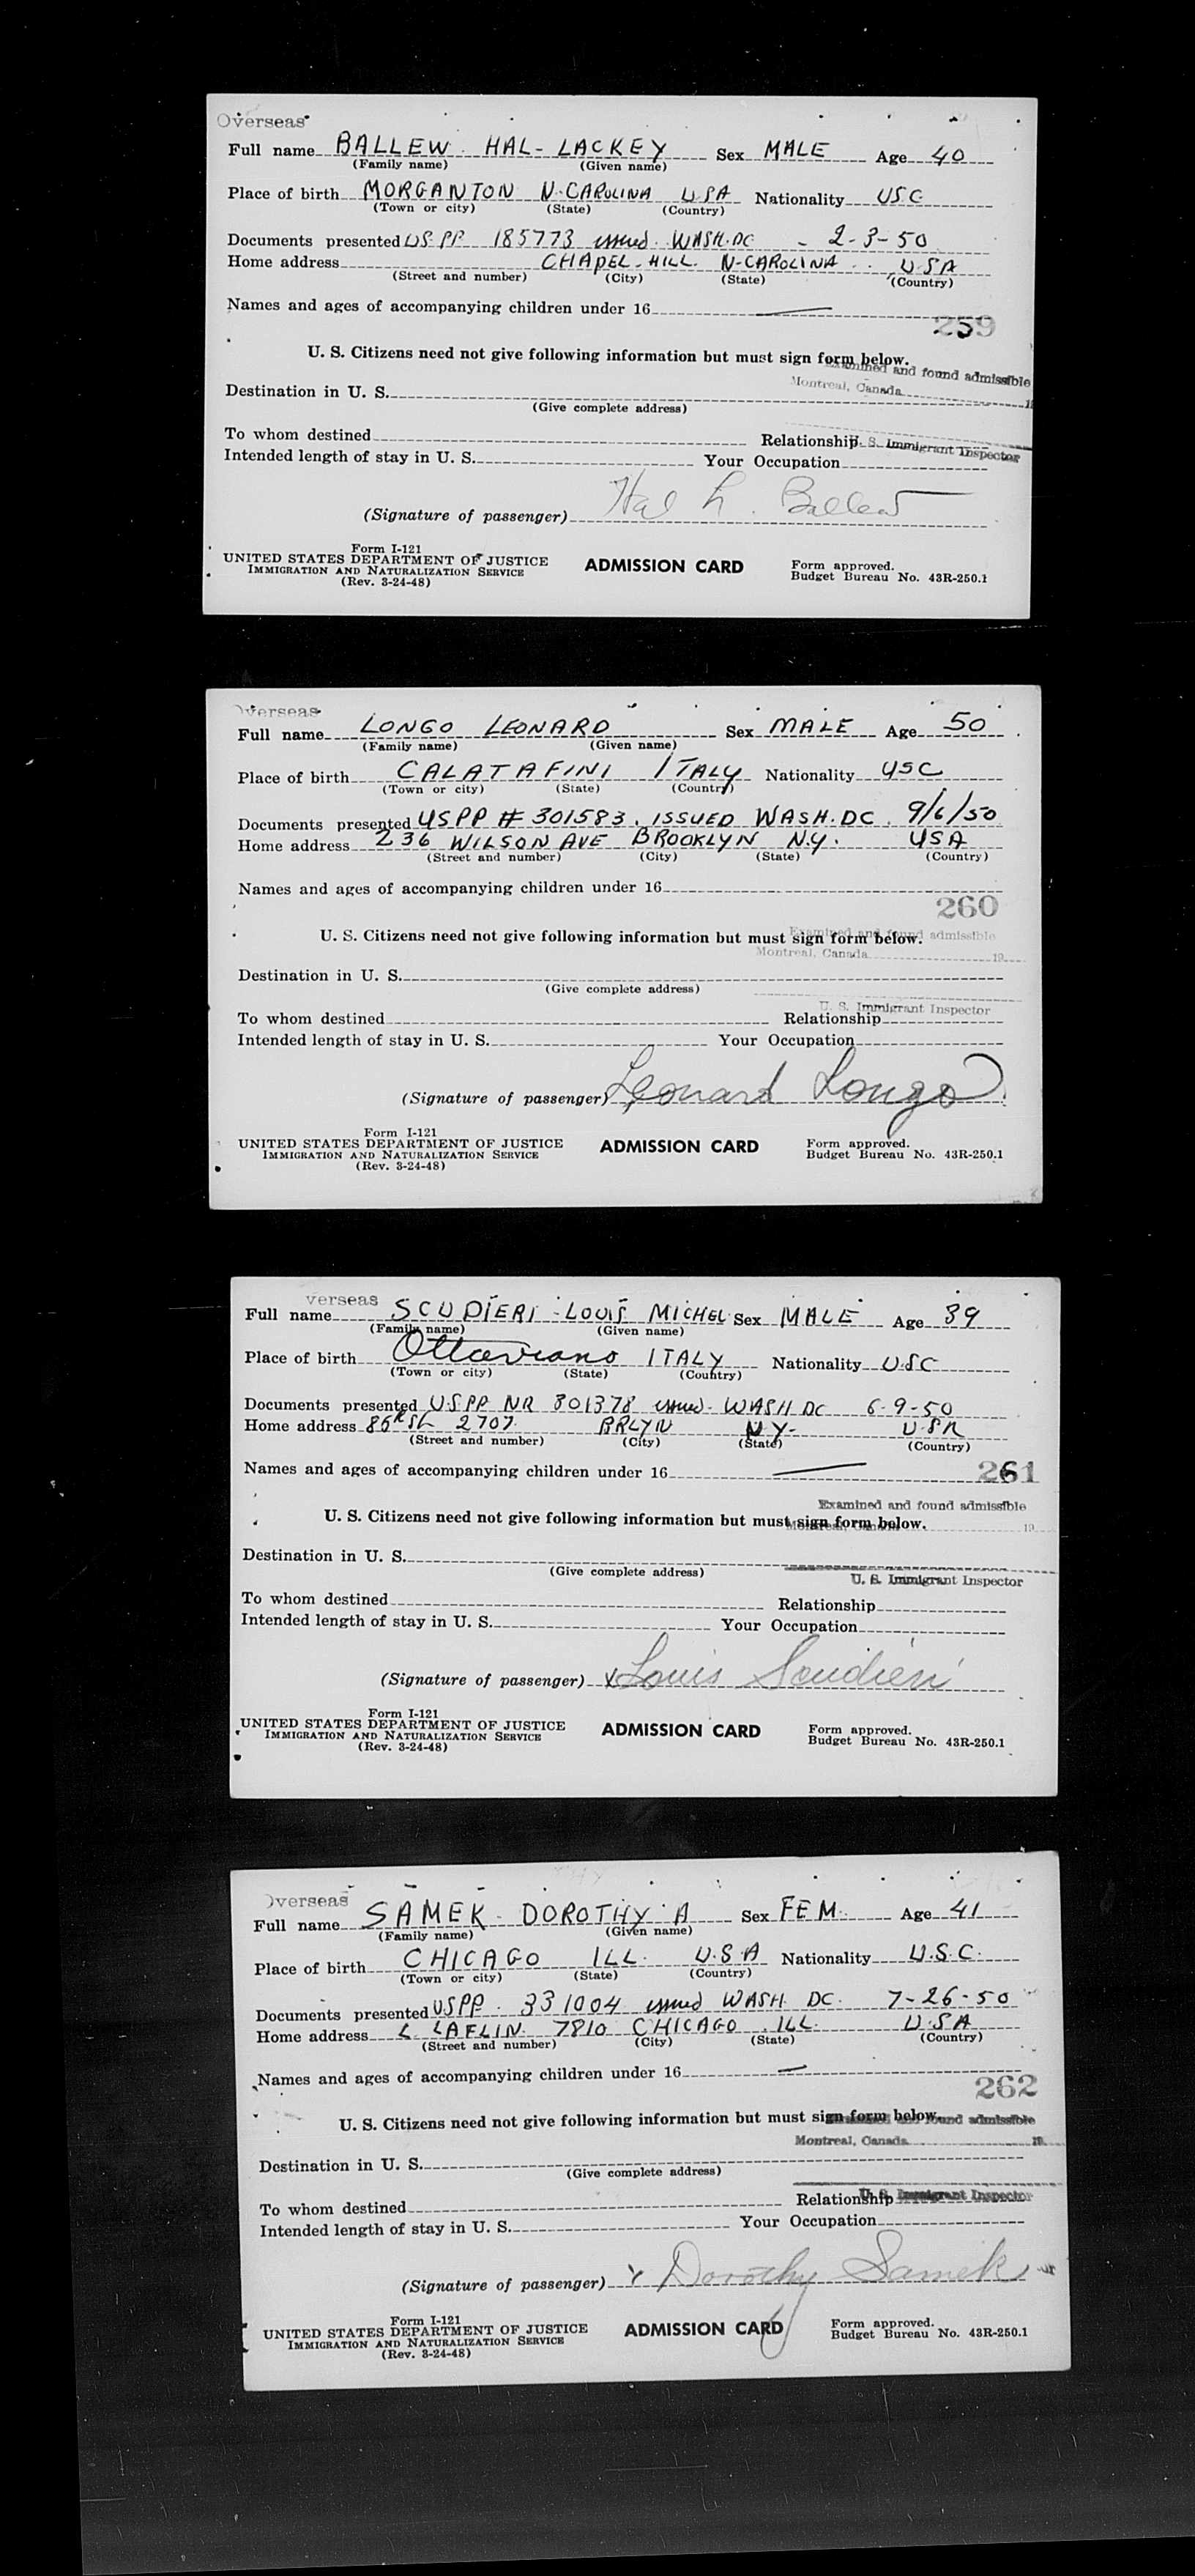 Overseas
Full name BALLEW HAL-LACKEY Sex MALE Age 40
(Family name) (Given name)
Place of birth MORGANTON N-CAROLINA USA Nationality USC
(Town or city) (State) (Country)
Documents presented US PP 185773 issued WASH.DC - 2-3-50
Home address CHAPEL-HILL N-CAROLINA USA
(Street and number) (City) (State) (Country)
Names and ages of accompanying children under 16 —
259
U. S. Citizens need not give following information but must sign form below.
Examined and found admissible
Montreal, Canada 19
Destination in U. S.
(Give complete address)
To whom destined Relationship U. S. Immigrant Inspector
Intended length of stay in U. S. Your Occupation
(Signature of passenger) Hal L. Ballew
Form I-121
UNITED STATES DEPARTMENT OF JUSTICE ADMISSION CARD Form approved.
IMMIGRATION AND NATURALIZATION SERVICE Budget Bureau No. 43R-250.1
(Rev. 3-24-48)
verseas
Full name LONGO LEONARD Sex MALE Age 50
(Family name) (Given name)
Place of birth CALATAFINI ITALY Nationality USC
(Town or city) (State) (Country)
Documents presented USPP # 301583. ISSUED WASH.DC. 9/6/50
Home address 236 WILSON AVE BROOKLYN N.Y. USA
(Street and number) (City) (State) (Country)
Names and ages of accompanying children under 16
260
U. S. Citizens need not give following information but must sign form below.
Examined and found admissible
Montreal, Canada 19
Destination in U. S.
(Give complete address)
U. S. Immigrant Inspector
To whom destined Relationship
Intended length of stay in U. S. Your Occupation
(Signature of passenger) Leonard Longo
Form I-121
UNITED STATES DEPARTMENT OF JUSTICE ADMISSION CARD Form approved.
IMMIGRATION AND NATURALIZATION SERVICE Budget Bureau No. 43R-250.1
(Rev. 3-24-48)
verseas
Full name SCUDIERI LOUIS MICHEL Sex MALE Age 39
(Family name) (Given name)
Place of birth Ottaviano ITALY Nationality USC
(Town or city) (State) (Country)
Documents presented USPP NR 301378 issued WASH DC 6-9-50
Home address 86 St 2707 BRLYN N.Y- USA
(Street and number) (City) (State) (Country)
Names and ages of accompanying children under 16 —
261
Examined and found admissible
U. S. Citizens need not give following information but must sign form below.
Montreal, Canada 19
Destination in U. S.
(Give complete address)
U. S. Immigrant Inspector
To whom destined Relationship
Intended length of stay in U. S. Your Occupation
(Signature of passenger) x Louis Scudieri
Form I-121
UNITED STATES DEPARTMENT OF JUSTICE ADMISSION CARD Form approved.
IMMIGRATION AND NATURALIZATION SERVICE Budget Bureau No. 43R-250.1
(Rev. 3-24-48)
Overseas
Full name SAMEK DOROTHY A Sex FEM. Age 41
(Family name) (Given name)
Place of birth CHICAGO ILL. U.S.A Nationality U.S.C.
(Town or city) (State) (Country)
Documents presented USPP. 331004 issued WASH DC. 7-26-50
Home address LAFLIN 7810 CHICAGO ILL. U.S.A
(Street and number) (City) (State) (Country)
Names and ages of accompanying children under 16 —
262
U. S. Citizens need not give following information but must sign form below.
Examined and found admissible
Montreal, Canada 19
Destination in U. S.
(Give complete address)
To whom destined Relationship U. S. Immigrant Inspector
Intended length of stay in U. S. Your Occupation
(Signature of passenger) x Dorothy Samek
Form I-121
UNITED STATES DEPARTMENT OF JUSTICE ADMISSION CARD Form approved.
IMMIGRATION AND NATURALIZATION SERVICE Budget Bureau No. 43R-250.1
(Rev. 3-24-48)